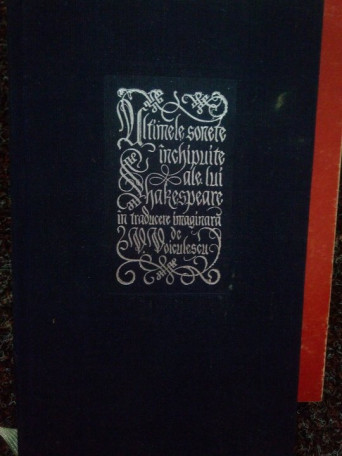 Ultimele sonete
închipuite
ale lui
Shakespeare
în traducere imaginară
de
V. Voiculescu